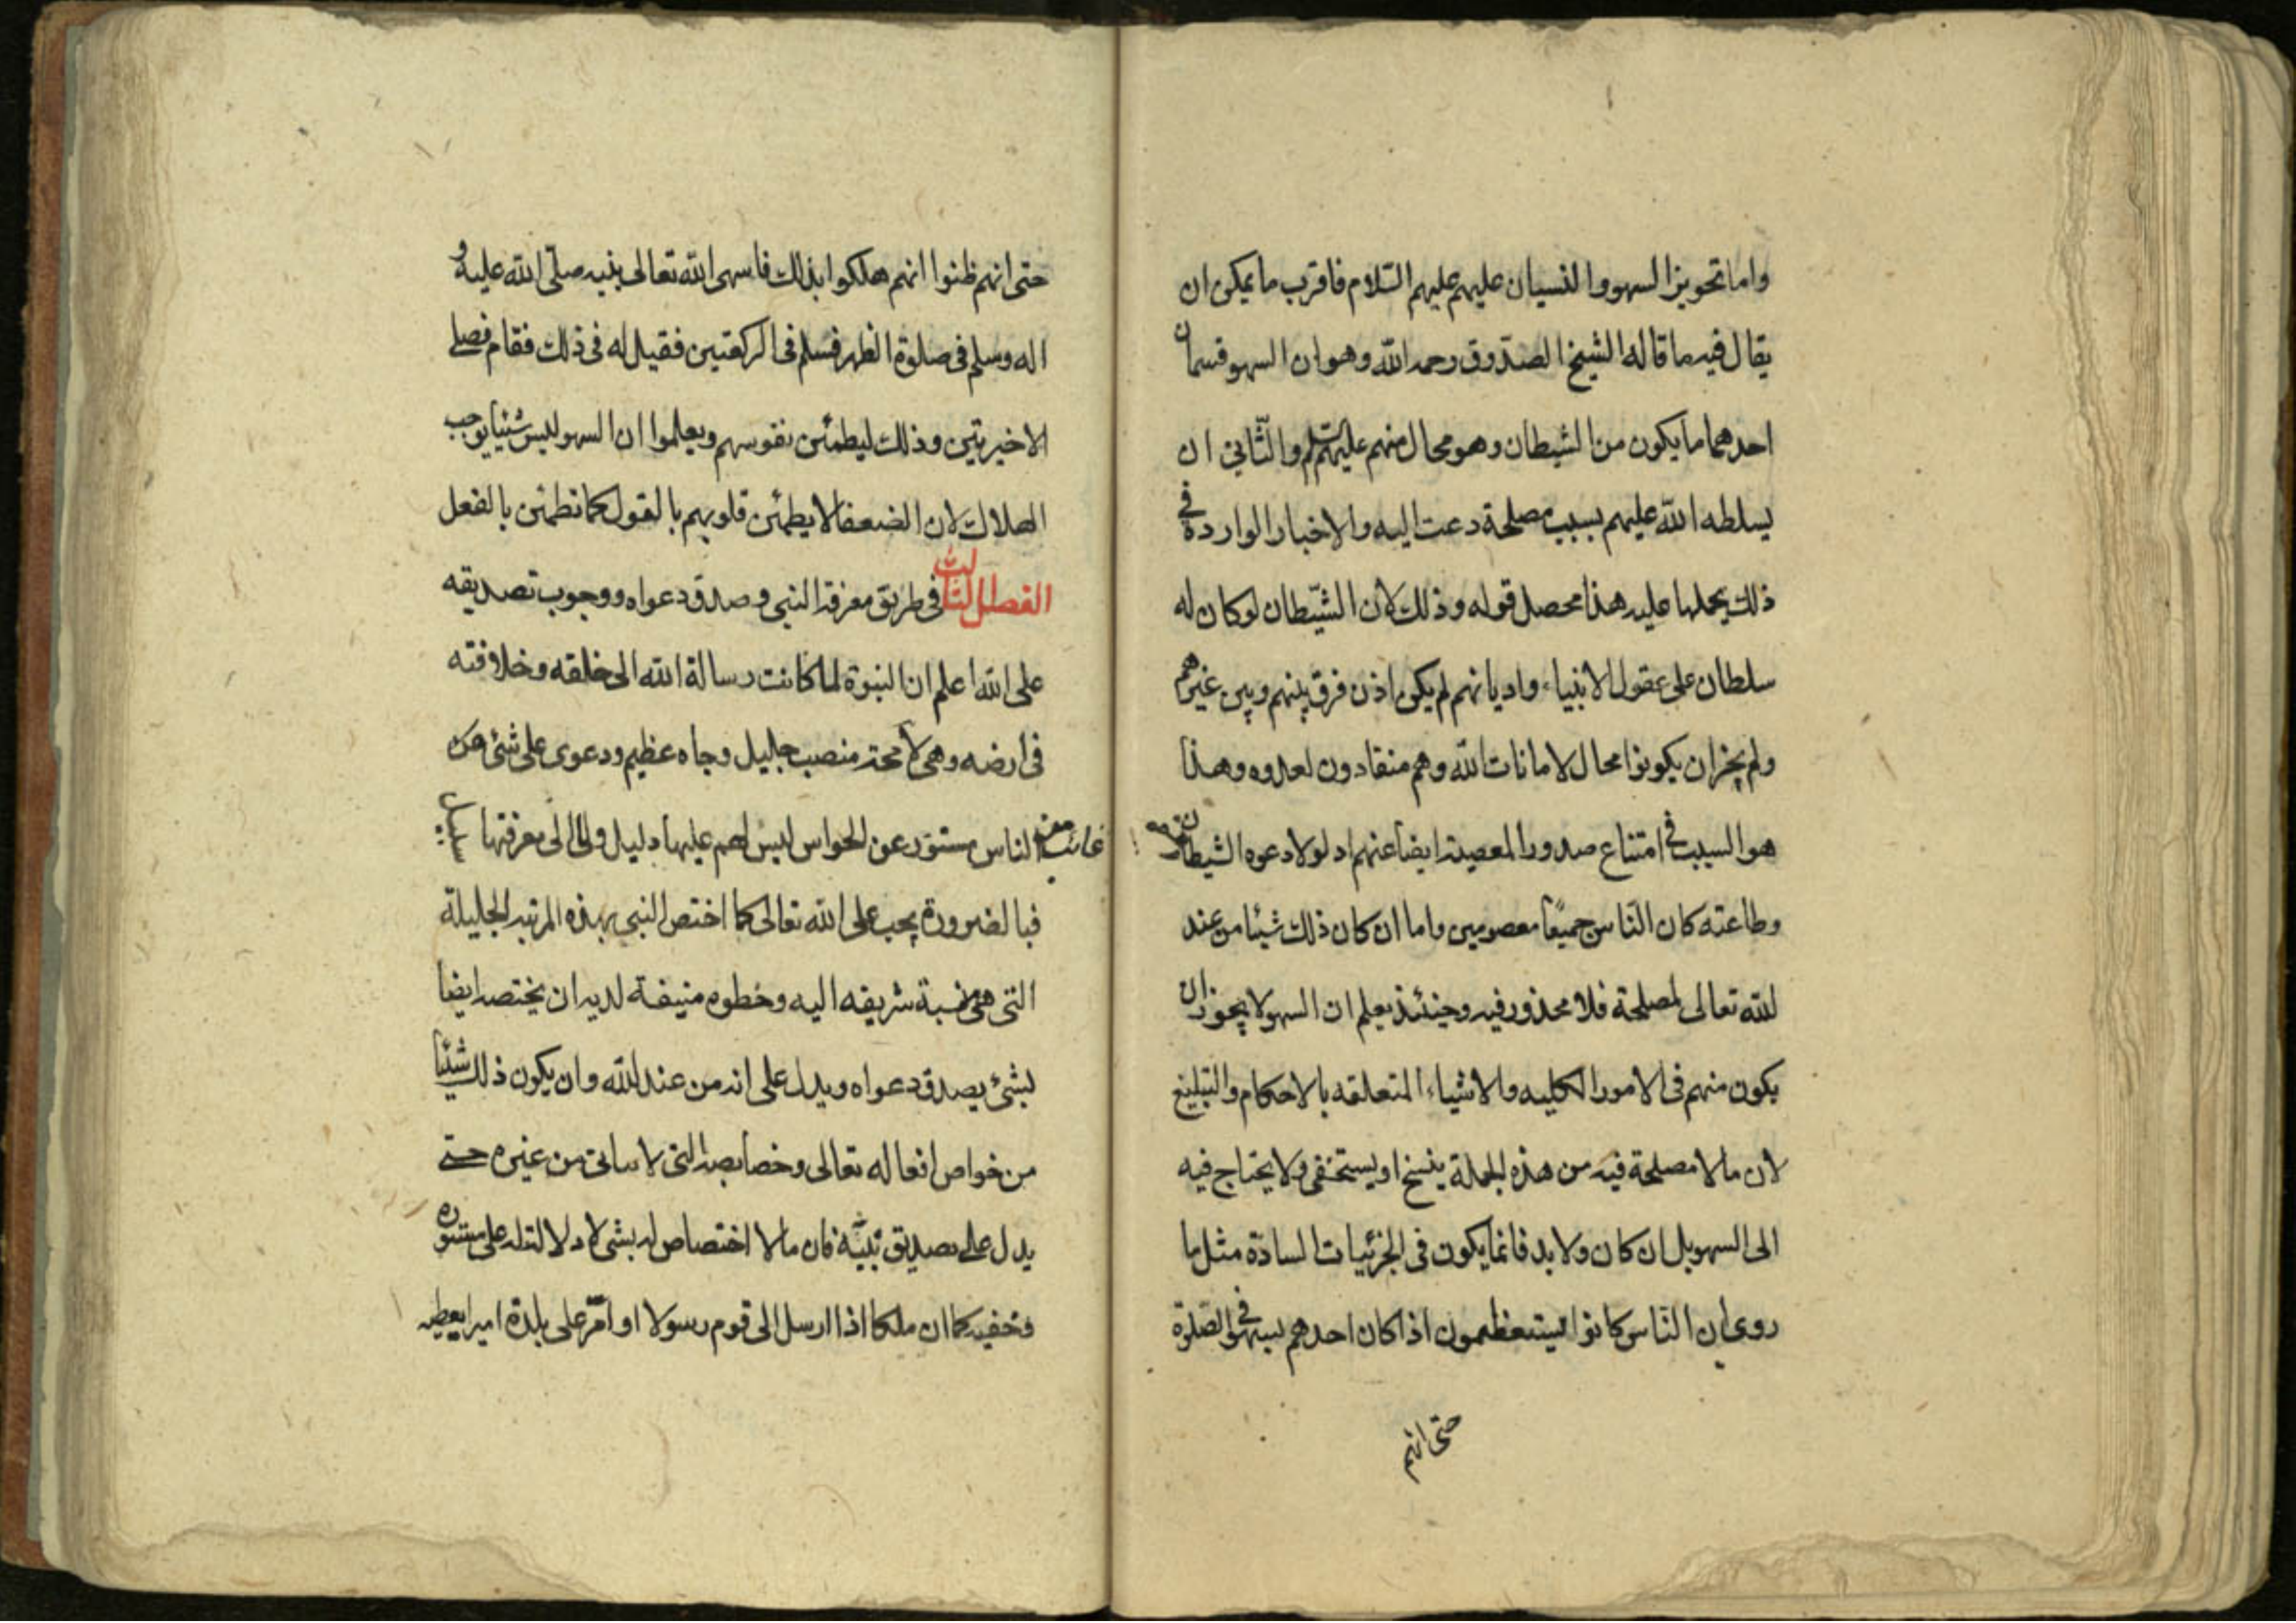 واما تجويز السهو والنسيان عليهم عليهم السّلام فاقرب ما يمكن ان
يقال فيه ما قاله الشيخ الصدّوق رحمه الله وهو ان السهو قسمان
احدهما ما يكون من الشيطان وهو محال منهم عليهم السلم والثّاني ان
يسلطه الله عليهم بسبب مصلحة دعت اليه والاخبار الواردة في
ذلك يحملها عليه هذا محصل قوله وذلك لان الشّيطان لو كان له
سلطان على عقول الانبياء واديانهم لم يكن اذن فرق بينهم وبين غيرهم
ولم يجز ان يكونوا محال لامانات الله وهم منقادون لعدوه وهذا
هو السبب في امتناع صدور المعصية ايضا عنهم اذ لولا دعوه الشيطان
وطاعته كان النّاس جميعًا معصومين واما ان كان ذلك شيئا من عند
الله تعالى لمصلحة فلا محذور فيه وحينئذ يعلم ان السهو لا يجوز ان
يكون منهم في الامور الكليه والاشياء المتعلقه بالاحكام والتبليغ
لان ما لا مصلحة فيه من هذه الجملة ينسخ او يستخفى ولا يحتاج فيه
الى السهو بل ان كان ولا بد فانما يكون في الجزئيات السادّة مثل ما
روى ان النّاس كانوا يستعظمون اذا كان احدهم يسهو في الصّلوة
حتى انهم
حتى انهم ظنوا انهم هلكوا بذلك فاسهى الله تعالى بنبيه صلّى الله عليه و
اله وسلم في صلوة الظهر فسلم في الركعتين فقيل له في ذلك فقام فصلى
الاخيرتين وذلك ليطمئن نفوسهم ويعلموا ان السهو ليس شيئا يوجب
الهلاك لان الضعفا لا يطمئن قلوبهم بالقول كما تطمئن بالفعل
الفصل الثالث في طريق معرفة النبي وصدق دعواه ووجوب تصديقه
على الله اعلم ان النبوة لما كانت رسالة الله الى خلقه وخلافته
في ارضه وهي لا محة منصب جليل وجاه عظيم ودعوى على شئ من
غائب عن الناس مستور عن الحواس ليس لهم عليها دليل ولا الى معرفتها سبيل
فبالضرورة يجب على الله تعالى كما اختص النبي بهذه المرتبه الجليلة
التي هي نسبة شريفه اليه وخطوه منيفة لديه ان يختصه ايضا
بشئ يصدق دعواه ويدل على انه من عند الله وان يكون ذلك شيئا
من خواص افعاله تعالى وخصايصه التي لا يتاتى من غيره حتى
يدل على تصديق نبيّه فان ما لا اختصاص له بشي لا دلالة له على مستوره
وخفيه كما ان ملكا اذا ارسل الى قوم رسولا او امّر على بلدة اميرا يعطيه